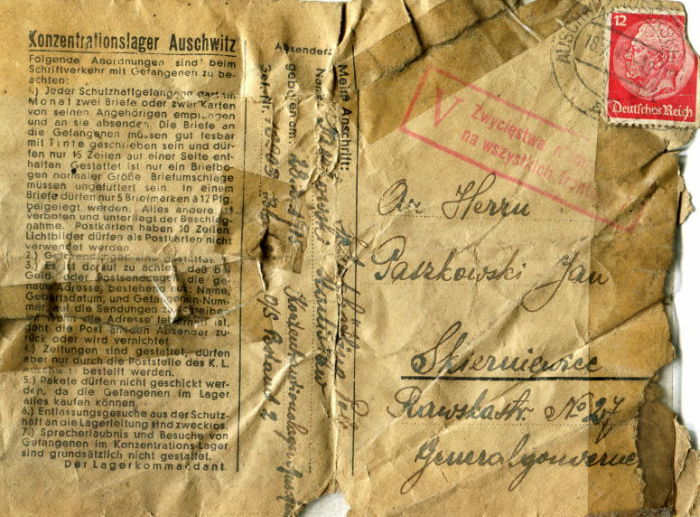 Konzentrationslager Auschwitz
Folgende Anordnungen sind beim
Schriftverkehr mit Gefangenen zu be-
achten:
1.) Jeder Schutzhaftgefangene darf im
Monat zwei Briefe oder zwei Karten
von seinen Angehörigen empfangen
und an sie absenden. Die Briefe an
die Gefangenen müssen gut lesbar
mit Tinte geschrieben sein und dür-
fen nur 15 Zeilen auf einer Seite ent-
halten. Gestattet ist nur ein Briefbo-
gen normaler Größe. Briefumschläge
müssen ungefüttert sein. In einem
Briefe dürfen nur 5 Briefmarken à 12 Pfg.
beigelegt werden. Alles andere ist
verboten und unterliegt der Beschlag-
nahme. Postkarten haben 10 Zeilen.
Lichtbilder dürfen als Postkarten nicht
verwendet werden.
2.) Geldsendungen sind gestattet.
3.) Es ist darauf zu achten, daß bei
Geld- oder Postsendungen die ge-
naue Adresse, bestehend aus: Name,
Geburtsdatum, und Gefangenen-Num-
mer, auf die Sendungen zu schreiben
ist. Wenn die Adresse fehlerhaft ist,
geht die Post an den Absender zu-
rück oder wird vernichtet.
4.) Zeitungen sind gestattet, dürfen
aber nur durch die Poststelle des K. L.
Auschwitz bestellt werden.
5.) Pakete dürfen nicht geschickt wer-
den, da die Gefangenen im Lager
alles kaufen können.
6.) Entlassungsgesuche aus der Schutz-
haft an die Lagerleitung sind zwecklos.
7.) Sprecherlaubnis und Besuche von
Gefangenen im Konzentrations-Lager
sind grundsätzlich nicht gestattet.
Der Lagerkommandant.
Meine Anschrift:
Absender:
Name:
geboren am:
Gef.-Nr.
Konzentrationslager
O/S Postamt 2
AUSCHWITZ
18.
12
Deutsches Reich
V Zwycięstwa
na wszystkich
An Herrn
Paszkowski Jan
Skierniewice
Rawskastr No 27
Generalgouverne